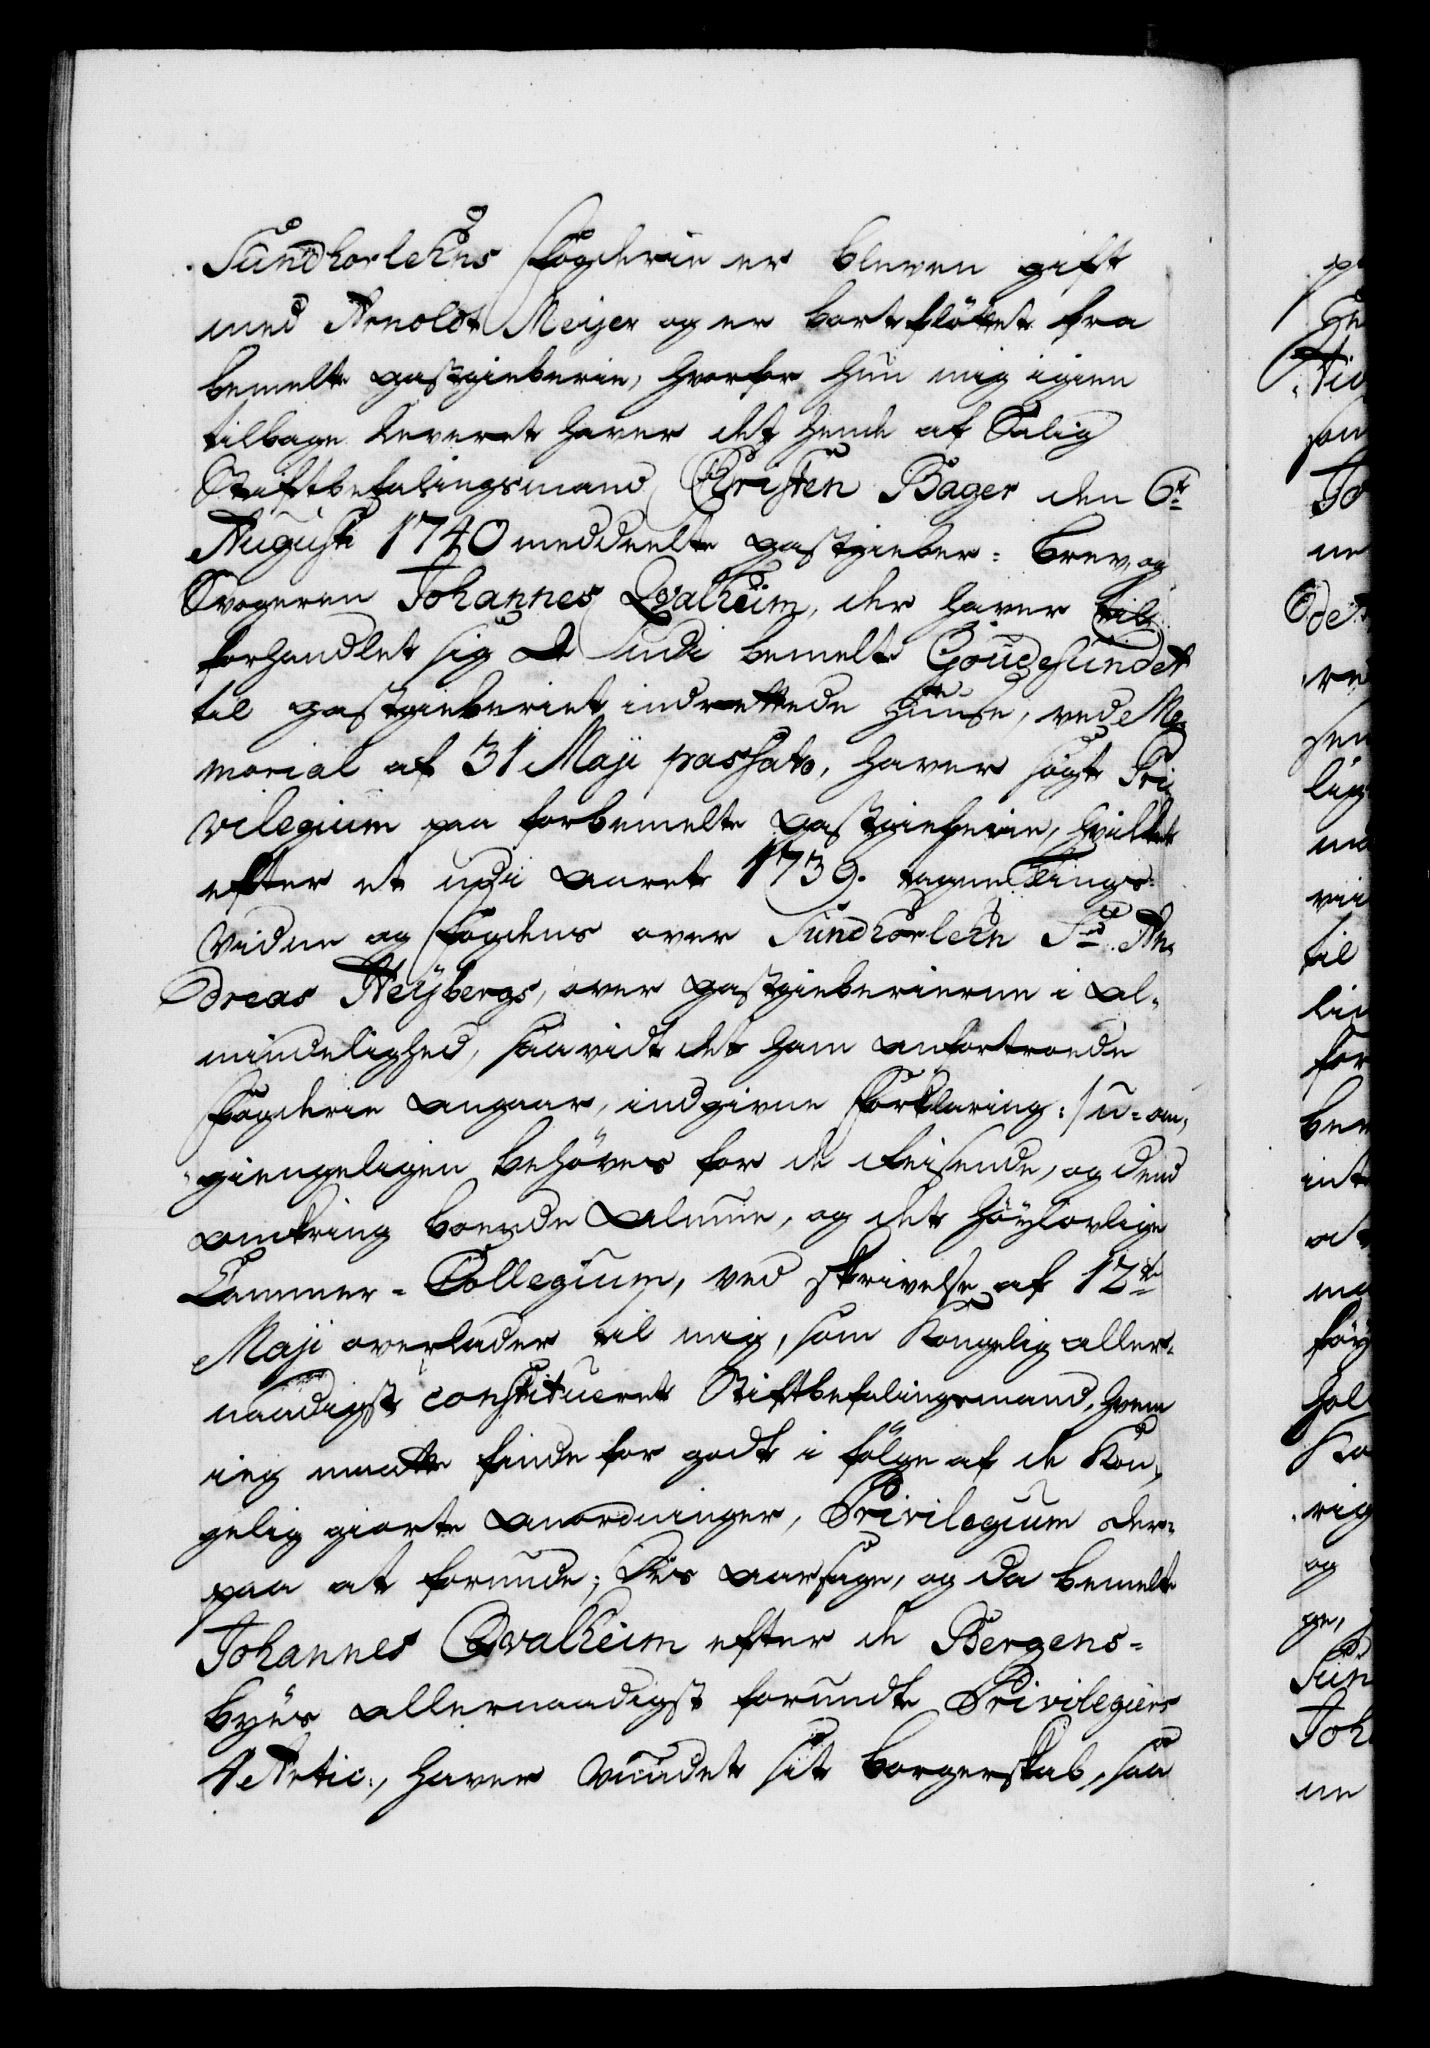 Sundhorlehns Fogderie er bleven gift
med Arnoldt Meyer og er bortfløttet fra
bemelte gastgieberie, hvorfor hun mig igien
tilbage leveret haver det hende af Salig
Stiftbefalingsmand Christen Bager den 6te
Augusti 1740 meddeelte gastgieber-brev, og
Svogeren Johannes Qvalheim, der haver til
forhandlet sig de udi bemelte Goudesundet
til gastgieberiet indrettede Huuse, ved Me-
morial af 31 Maji passato, haver søgt Pri-
vilegium paa forbemelte gastgieberie, hvilket
efter et udi Aaret 1739. tagne Tings-
vidne og Fogdens over Sundhorlehn Sr. An-
dreas Heybergs, over gastgieberierne i Al-
mindelighed, saavidt det ham anfortroede
Fogderie angaar, indgivne Forklaring: u-om-
giengeligen behøves for de Reisende, og dend
omkring boende Almue, og det høylovlige
Cammer-Collegium, ved skrivelse af 12te
Maji overlader til mig, som Kongelig aller-
naadigst constitueret Stiftbefalingsmand, hvem
ieg maatte finde for godt i følge af de Kon-
gelig giorte Anordninger, Privilegium der-
paa at forunde; Dis aarsage, og da bemelte
Johannes Qvalheim efter de Bergens-
byes allernaadigst forundte Privilegiers
1 Artic:, haver vundet sit borgerskab, saa